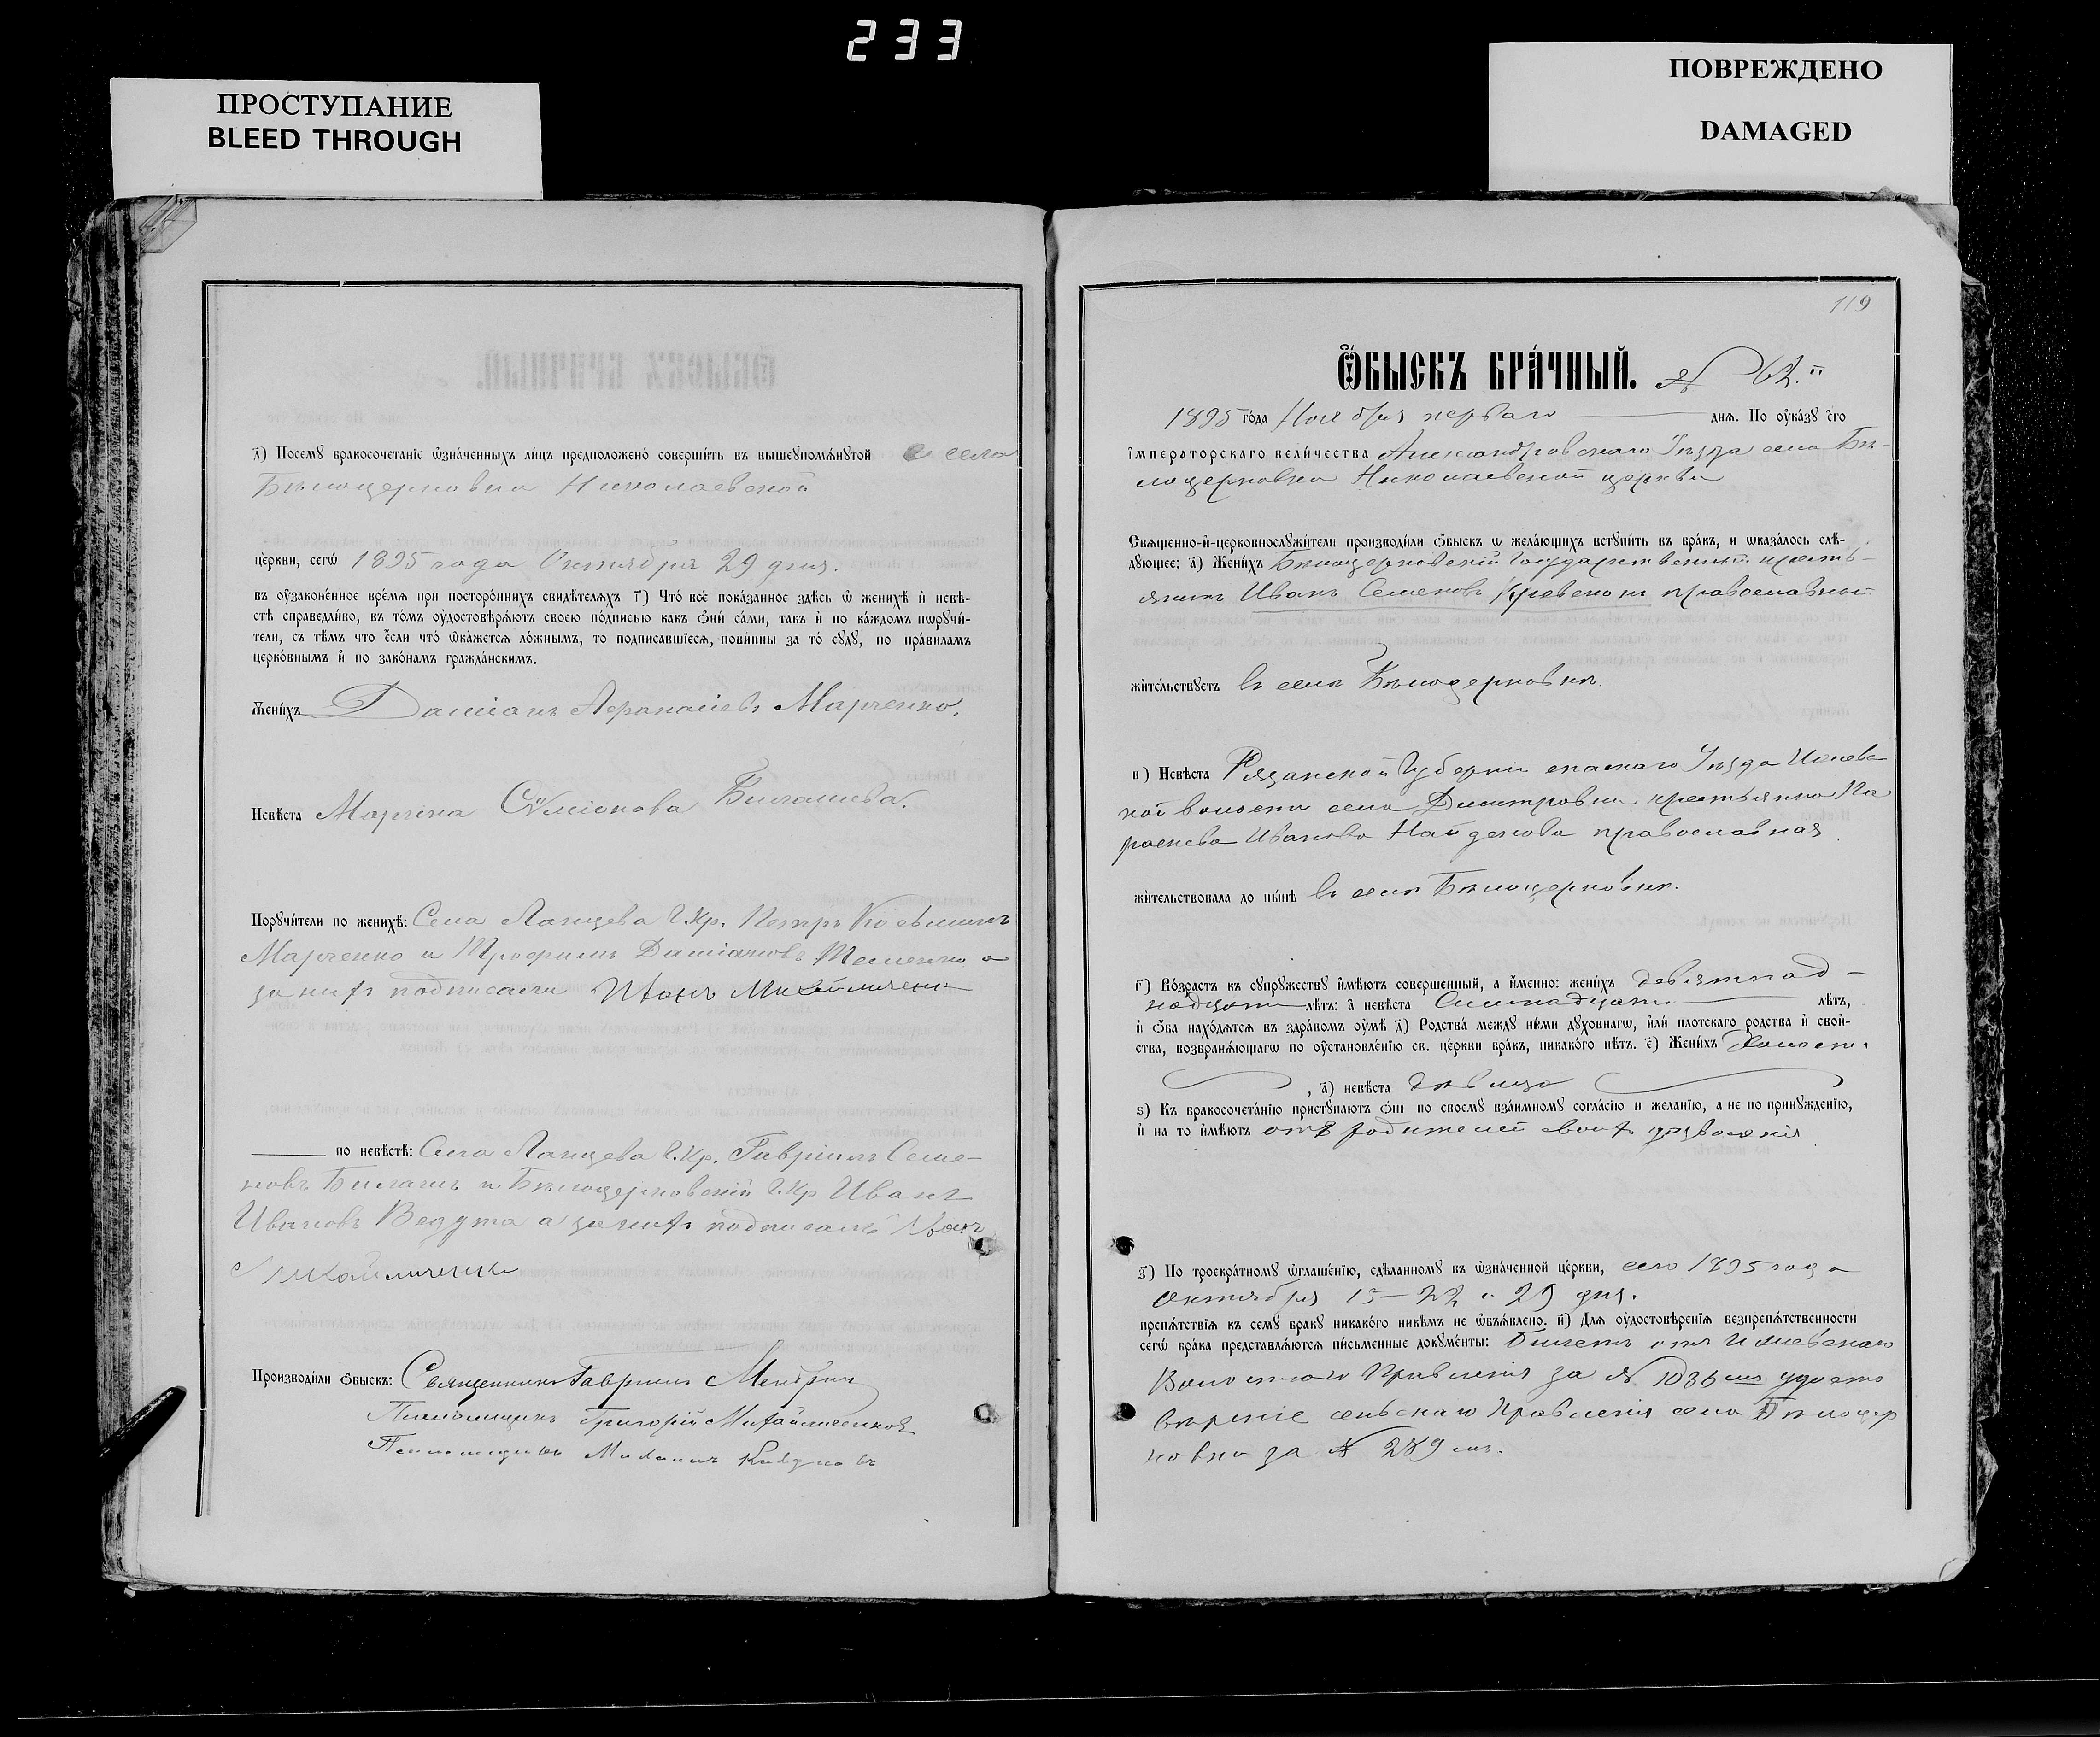 233
ПРОСТУПАНИЕ
BLEED THROUGH
ПОВРЕЖДЕНО
DAMAGED
д) Посему бракосочетаніе ѡзначенныхъ лицъ предположено совершить въ вышеупомянутой села
Бѣлоцерковки Николаевской
церкви, сегѡ 1895 года Октября 29 дня.
въ оузаконенное время при постороннихъ свидѣтеляхъ г) Что все показанное здѣсь ѡ женихѣ и невѣ-
стѣ справедливо, въ томъ оудостовѣряютъ своею подписью какъ ѻни сами, такъ и по каждомъ пѡручи-
тели, съ тѣмъ что если что ѡкажется ложнымъ, то подписавшіеся, повинны за то суду, по правиламъ
церковнымъ и по законамъ гражданскимъ.
Женихъ Даміанъ Афанасіевъ Марченко.
Невѣста Марѳина Симіонова
Поручители по женихѣ: Села Ланцева Г. Кр. Петръ
Марченко и Трофимъ Даміановъ а
за нихъ подписали Иванъ Михайличенко
по невѣстѣ: Села Ланцева Г. Кр. Гавріилъ Семе-
новъ и Бѣлоцерковскій Г. Кр Иванъ
Ивановъ а за нихъ подписалъ Иванъ
Михайличенко
Производили ѻбыскъ: Священникъ Гавріилъ
Григорій Михайличенков
Михаилъ
119
Ѻбыскъ брачный. № 62.й
1895 года Ноября перваго дня. По оуказу его
императорскаго величества Александровскаго Уѣзда села Бѣ-
лоцерковки Николаевской церкви
Священно-и-церковнослужители производили ѻбыскъ ѡ желающихъ вступить въ бракъ, и ѡказалось слѣ-
дующее: а) Женихъ Бѣлоцерковскій Государственный кресть-
янинъ Иванъ Семеновъ православный
жительствуетъ въ селѣ Бѣлоцерковкѣ.
в) Невѣста Рязанской Губерніи спаскаго Уѣзда Ижев
кой волости села Дмитровки крестьянка Па
раскева Иванова Найденова православная.
жительствовала до нынѣ въ селѣ Бѣлоцерковкѣ.
г) Возрастъ къ супружеству имѣютъ совершенный, а именно: женихъ девятнад-
надцати лѣтъ: а невѣста Семнадцати лѣтъ,
и ѻба находятся въ здравомъ оумѣ д) Родства между ними духовнагѡ, или плотскаго родства и свой-
ства, возбраняющагѡ по оустановленію св. церкви бракъ, никакого нѣтъ. е) Женихъ холостъ.
, д) невѣста дѣвица
ѕ) Къ бракосочетанію приступаютъ ѻни по своему взаимному согласію и желанію, а не по принужденію,
и на то имѣютъ отъ родителей своихъ дозволенія
з) По троекратному ѡглашенію, сдѣланному въ ѡзначенной церкви, сего 1895 года
Октября 15–22 и 29 дня.
препятствія къ сему браку никакого никѣмъ не ѡбъявлено. и) Для оудостовѣренія безпрепятственности
сегѡ брака представляются письменные документы: Билетъ отъ Ижевскаго
Волостнаго Правленія за № 1036 мъ удосто
вѣреніе сельскаго Правленія села Бѣлоцер
ковки за № 289 мъ.